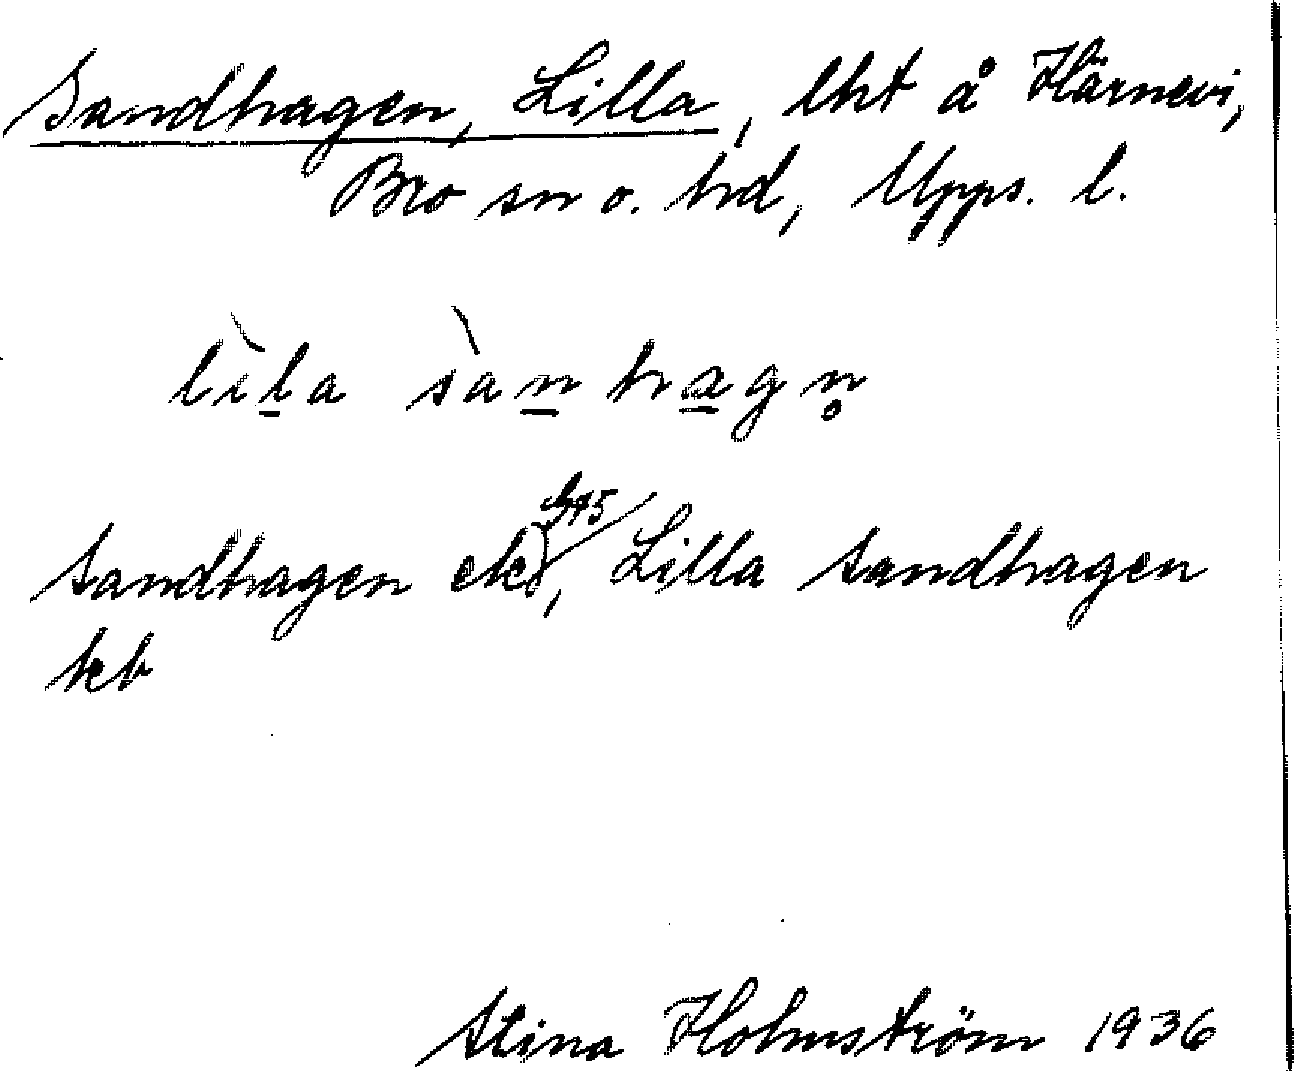 Sandhagen, Lilla, lht å Härnevi,
Bro sn o. hd, Upps. l.
lìla sànhagn̥
Sandhagen ek, Lilla Sandhagen
kb
Stina Holmström 1936